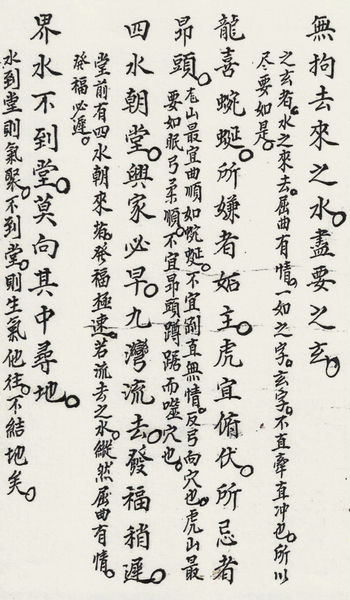 無拘去來之水。盡要之玄。
之玄者。水之來去。屈曲有情。一如之字。玄字。不直牽直冲也。所以
尽要如是。
龍喜蜿蜒。所嫌者妬主。虎宜俯伏。所忌者
昂頭。
龙山最宜曲順如蜿蜒。不宜剛直無情。反弓向穴也。虎山最
要如眠弓柔順。不宜昂頭蹲踞而噬穴也。
四水朝堂。興家必早。九灣流去。發福稍遲。
堂前有四水朝來者。發福極速。若流去之水。縱然屈曲有情。
發福必遲。
界水不到堂。莫向其中尋地。
水到堂則氣聚。不到堂。則生氣他往。不結地矣。